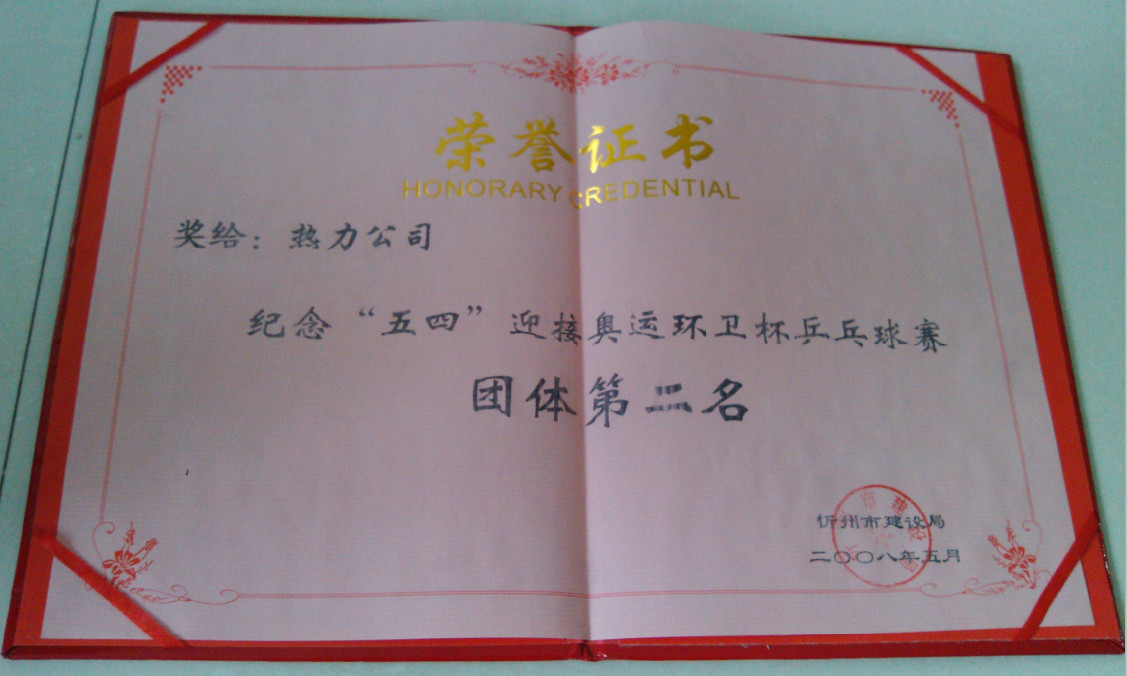 荣誉证书
HONORARY CREDENTIAL
奖给：热力公司
纪念“五四”迎接奥运环卫杯乒乓球赛
团体第二名
忻州市建设局
二〇〇八年五月